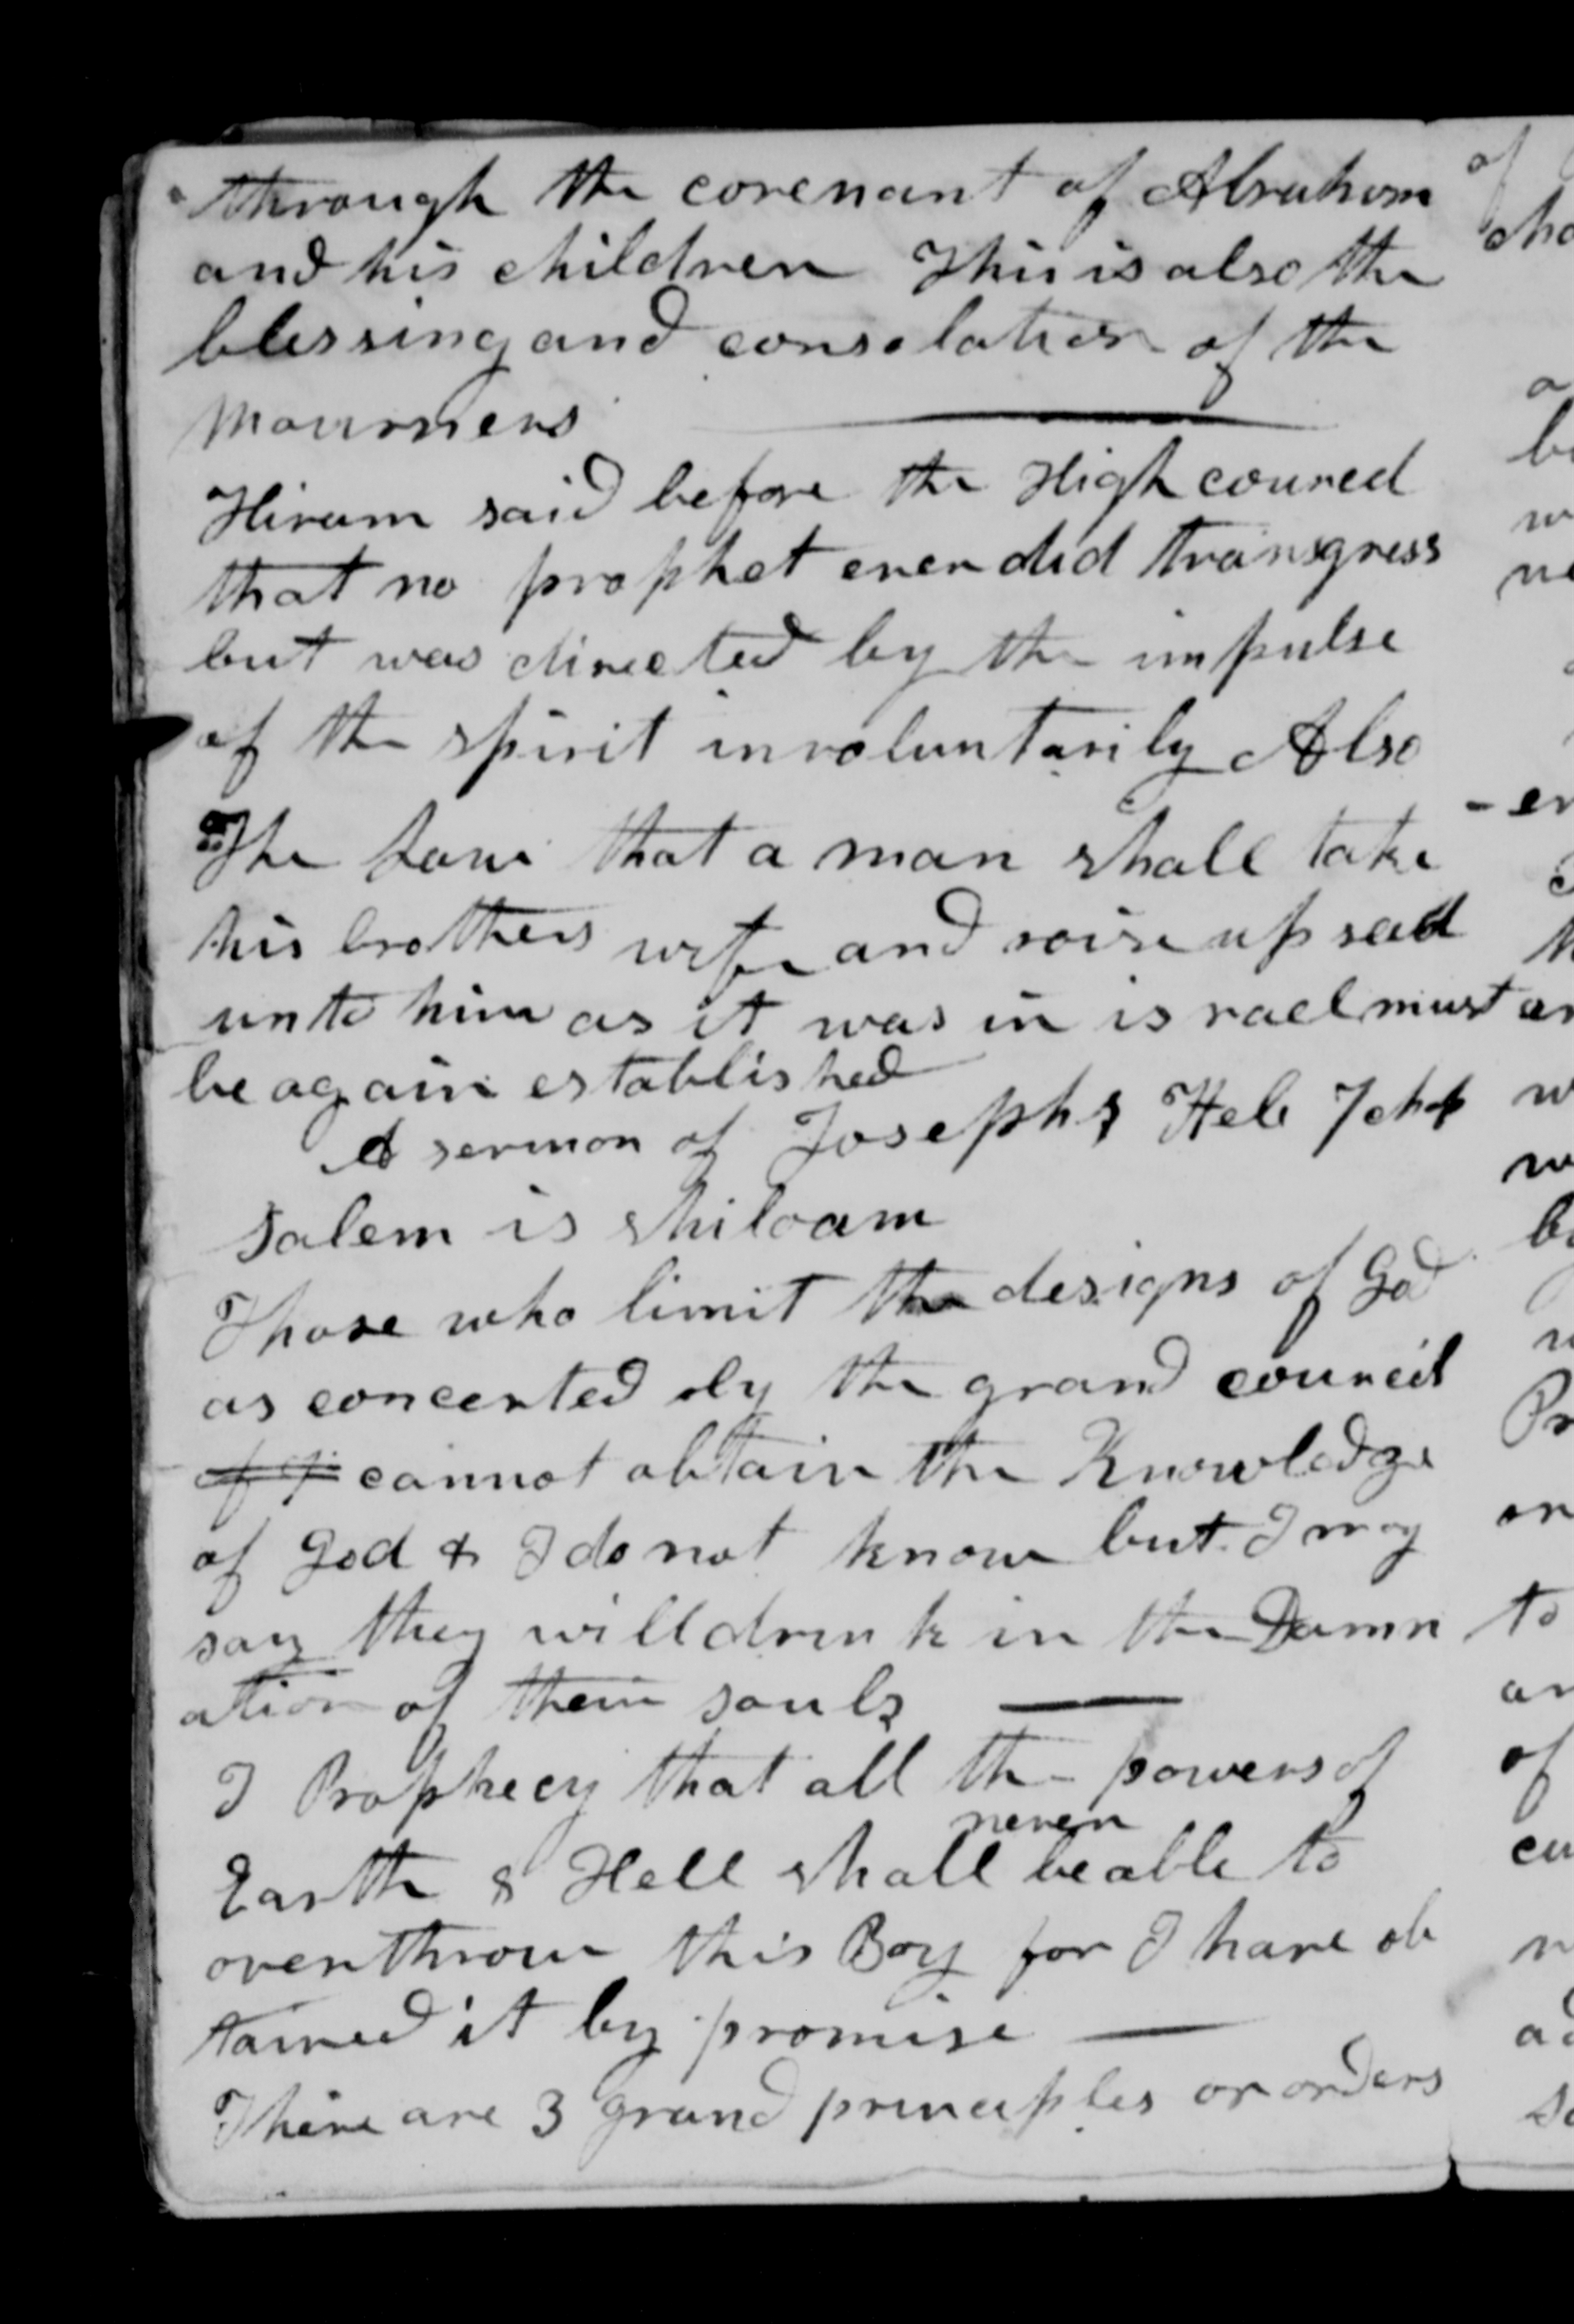 through the covenant of Abraham
and his children This is also the
blessing and consolation of the
mourners
Hiram said before the High councel
that no prophet ever did transgress
but was directed by the impulse
of the spirit involuntarily Also
The Law that a man shall take
his brothers wife and raise up seed
unto him as it was in israel must
be again established
A sermon of Joseph s Heb 7 chap
Salem is shiloam
Those who limit the designs of God
as concerted by the grand council
of cannot obtain the Knowledge
of God & I do not know but I may
say they will drink in the Damn
ation of their souls
I Prophecy that all the powers of
never
Earth & Hell shall be able to
overthrow this Boy for I have ob
tained it by promise
There are 3 grand principles or orders